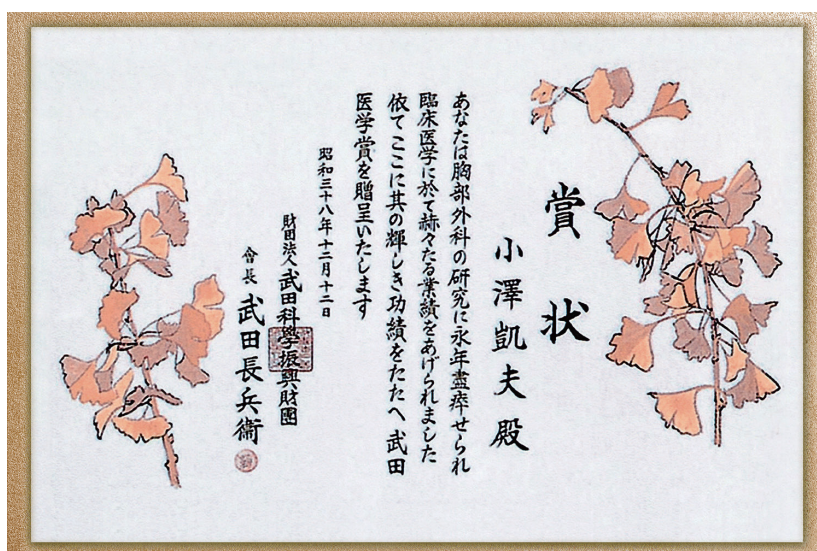 賞状
小澤凱夫殿
あなたは胸部外科の研究に永年盡瘁せられ
臨床医学に於て赫々たる業績をあげられました
依てここに其の輝しき功績をたたへ武田
医学賞を贈呈いたします
昭和三十八年十二月十二日
財団法人武田科學振興財團
會長 武田長兵衞